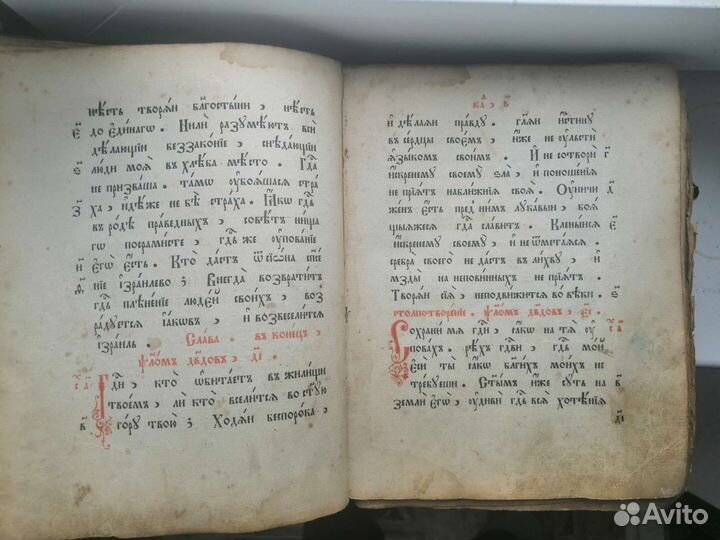 нѣ́сть творѧ́й бл҃госты́ни, нѣ́сть
є҃ до є҆ди́нагѡ. Нили̑ разꙋмѣ́ютъ вси̑
дѣ́лающїи беззако́нїе, снѣда́ющїи
ѕ҃ лю́ди моѧ̀ въ хлѣ́ба мѣ́сто. Гд҇а
не призва́ша. та́мѡ ᲂу҆боѧ́шасѧ стра́
з҃ ха, и҆дѣ́же не бѣ̀ стра́ха. Ꙗ҆́кѡ гд҇ь
въ ро́дѣ пра́ведныхъ, совѣ́тъ ни́ща
гѡ посрами́сте, гд҇ь же ᲂу҆пова́нїе
и҃ є҆гѡ̀ є҆́сть. Кто̀ да́стъ ѿ сїѡ́на сп҇се́
нїе і҆зра́илево; Внегда̀ возврати́тъ
гд҇ь плѣне́нїе люде́й свои́хъ, воз
ра́дꙋетсѧ і҆а́кѡвъ, и҆ возвесели́тсѧ
і҆зра́иль. Сла́ва. въ коне́цъ,
ѱало́мъ дв҃довъ, д҃і.
Гд҇и, кто̀ ѡ҆бита́етъ въ жили́щи
твое́мъ, и҆лѝ кто̀ всели́тсѧ во ст҃ꙋю
в҃ го́рꙋ твою̀; Ходѧ́й беспоро́ка,
ка, в҃
и҆ дѣ́лаѧй пра́вдꙋ. гл҃ѧй и҆́стинꙋ
въ се́рдцы свое́мъ, и҆́же не ᲂу҆льстѝ
ꙗ҆зы́комъ свои́мъ. И҆ не сотворѝ г҃
и҆́скреннемꙋ своемꙋ̀ ѕла̀, и҆ поноше́нїѧ
не прїѧ́тъ на бли́жнїѧ своѧ̀. Оу҆ничи д҃
же́нъ є҆́сть пред ни́мъ лꙋка́вый, боѧ́
щыѧжесѧ гд҇а сла́витъ. Клены́йсѧ є҃
и҆́скреннемꙋ своемꙋ̀, и҆ не ѿмета́ѧсѧ.
сребра̀ своегѡ̀ не да́стъ в ли́хвꙋ, и҆
мзды̀ на непови́нныхъ не прїѧ́тъ.
Творѧ́й сїѧ̀, неподви́житсѧ во вѣ́ки. ѕ҃
столпотворе́нїе. ѱало́мъ дв҃довъ, є҃і.
Сохрани́ мѧ гд҇и, ꙗ҆́кѡ на тѧ̀ ᲂу҆
пова́хъ. рѣ́хъ гд҇ви, гд҇ь мо́й
є҆сѝ ты̀ ꙗ҆́кѡ бл҃ги́хъ мои́хъ не
тре́бꙋеши. Ст҃ы́мъ и҆̀же сꙋ́ть на в҃
землѝ є҆гѡ̀, ᲂу҆дивѝ гд҇ь всѧ̑ хотѣ́нїѧ
Avito